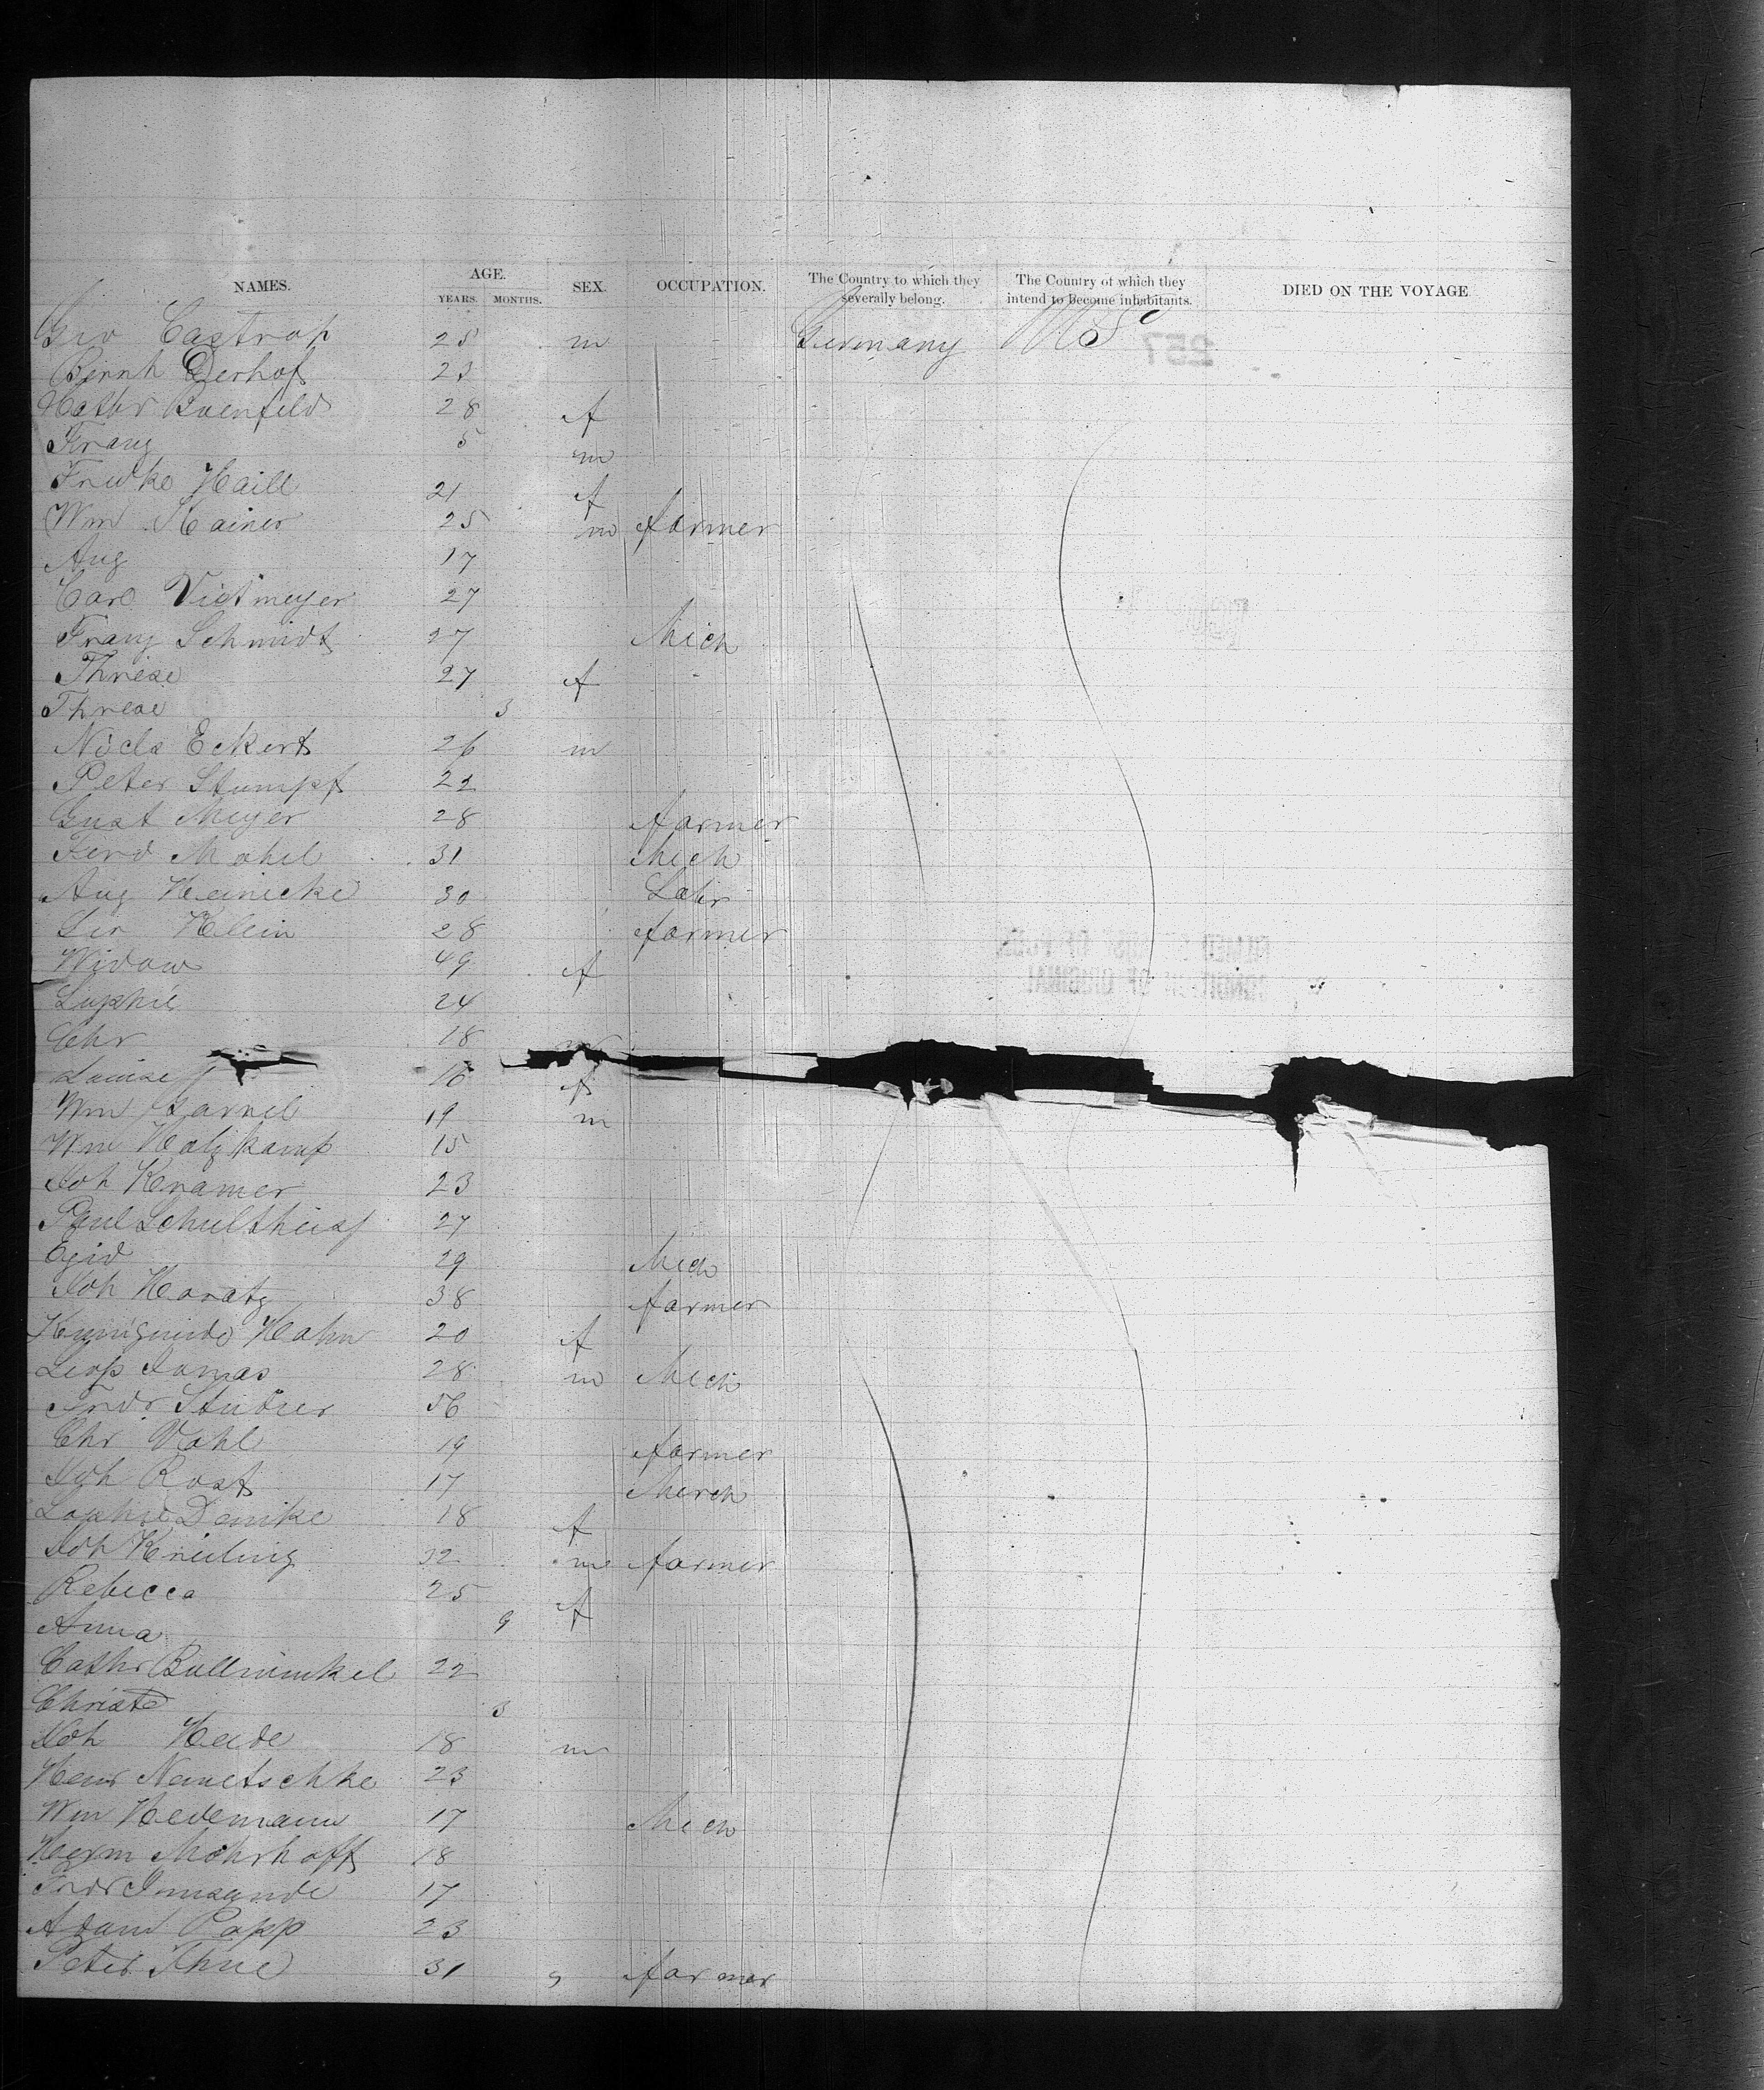 NAMES. AGE. SEX. OCCUPATION. The Country to which they severally belong. The Country of which they intend to become inhabitants. DIED ON THE VOYAGE
YEARS. MONTHS.
Geo Castrop 25 m Germany US
Bernh Derhof 23
Cathr Buenfeld 28 f
Franz 5 m
Haill 21 f
Wm Kainer 25 m farmer
Aug 17
Carl Vietmeyer 27
Franz Schmidt 27 Mech
Threse 27 f
Threse 3
Nicls Eckert 26 m
Peter Stumpf 22
Gust Meyer 28 farmer
Ferd Mahl 31 Mech
Aug Heinicke 30 Labr
Klein 28 farmer
Widow 49 f
Sophie 24
Chr 18 m
Louise 16 f
Wm 19 m
Wm Holzkamp 15
Joh Kramer 23
Paul Schultheiss 27
Egid 29 Mech
Joh 38 farmer
Kunigunde Hahn 20 f
Leop 28 m Mech
Fredr 56
Chr Vahl 19 farmer
Joh Rost 17 Merch
Sophie Damke 18 f
Joh 32 m farmer
Rebecca 25 f
Anna 9
Cathr Bullwinkel 22
Christe 3
Joh Heide 18 m
Heinr Nemetschke 23
Wm Hedemann 17 Mech
Herm Mohrhoff 18
Fredr 17
Adam Popp 23
Peter Thue 31 farmer